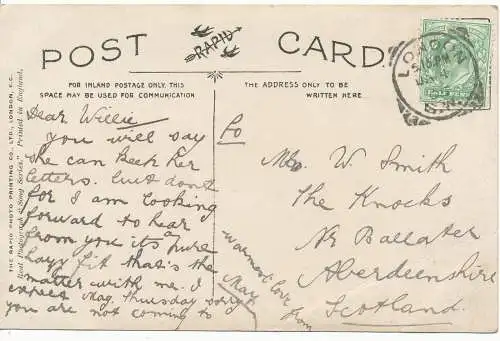 POST CARD.
RAPID
FOR INLAND POSTAGE ONLY, THIS
SPACE MAY BE USED FOR COMMUNICATION
THE ADDRESS ONLY TO BE
WRITTEN HERE
THE RAPID PHOTO PRINTING CO., LTD., LONDON, E.C.
Real Photograph & Song Series. Printed in England.
LONDON
HALFPENNY
Dear Willie
you will say
she can keek her
letters. but dont
for I am looking
forward to hear
from you its a pure
lazy fit that's the
matter with me. I
expect Mag, Thursday sorry
you are not coming to
warmest love from
May
To
W. Smith
The Knocks
Nr Ballater
Aberdeenshire
Scotland.